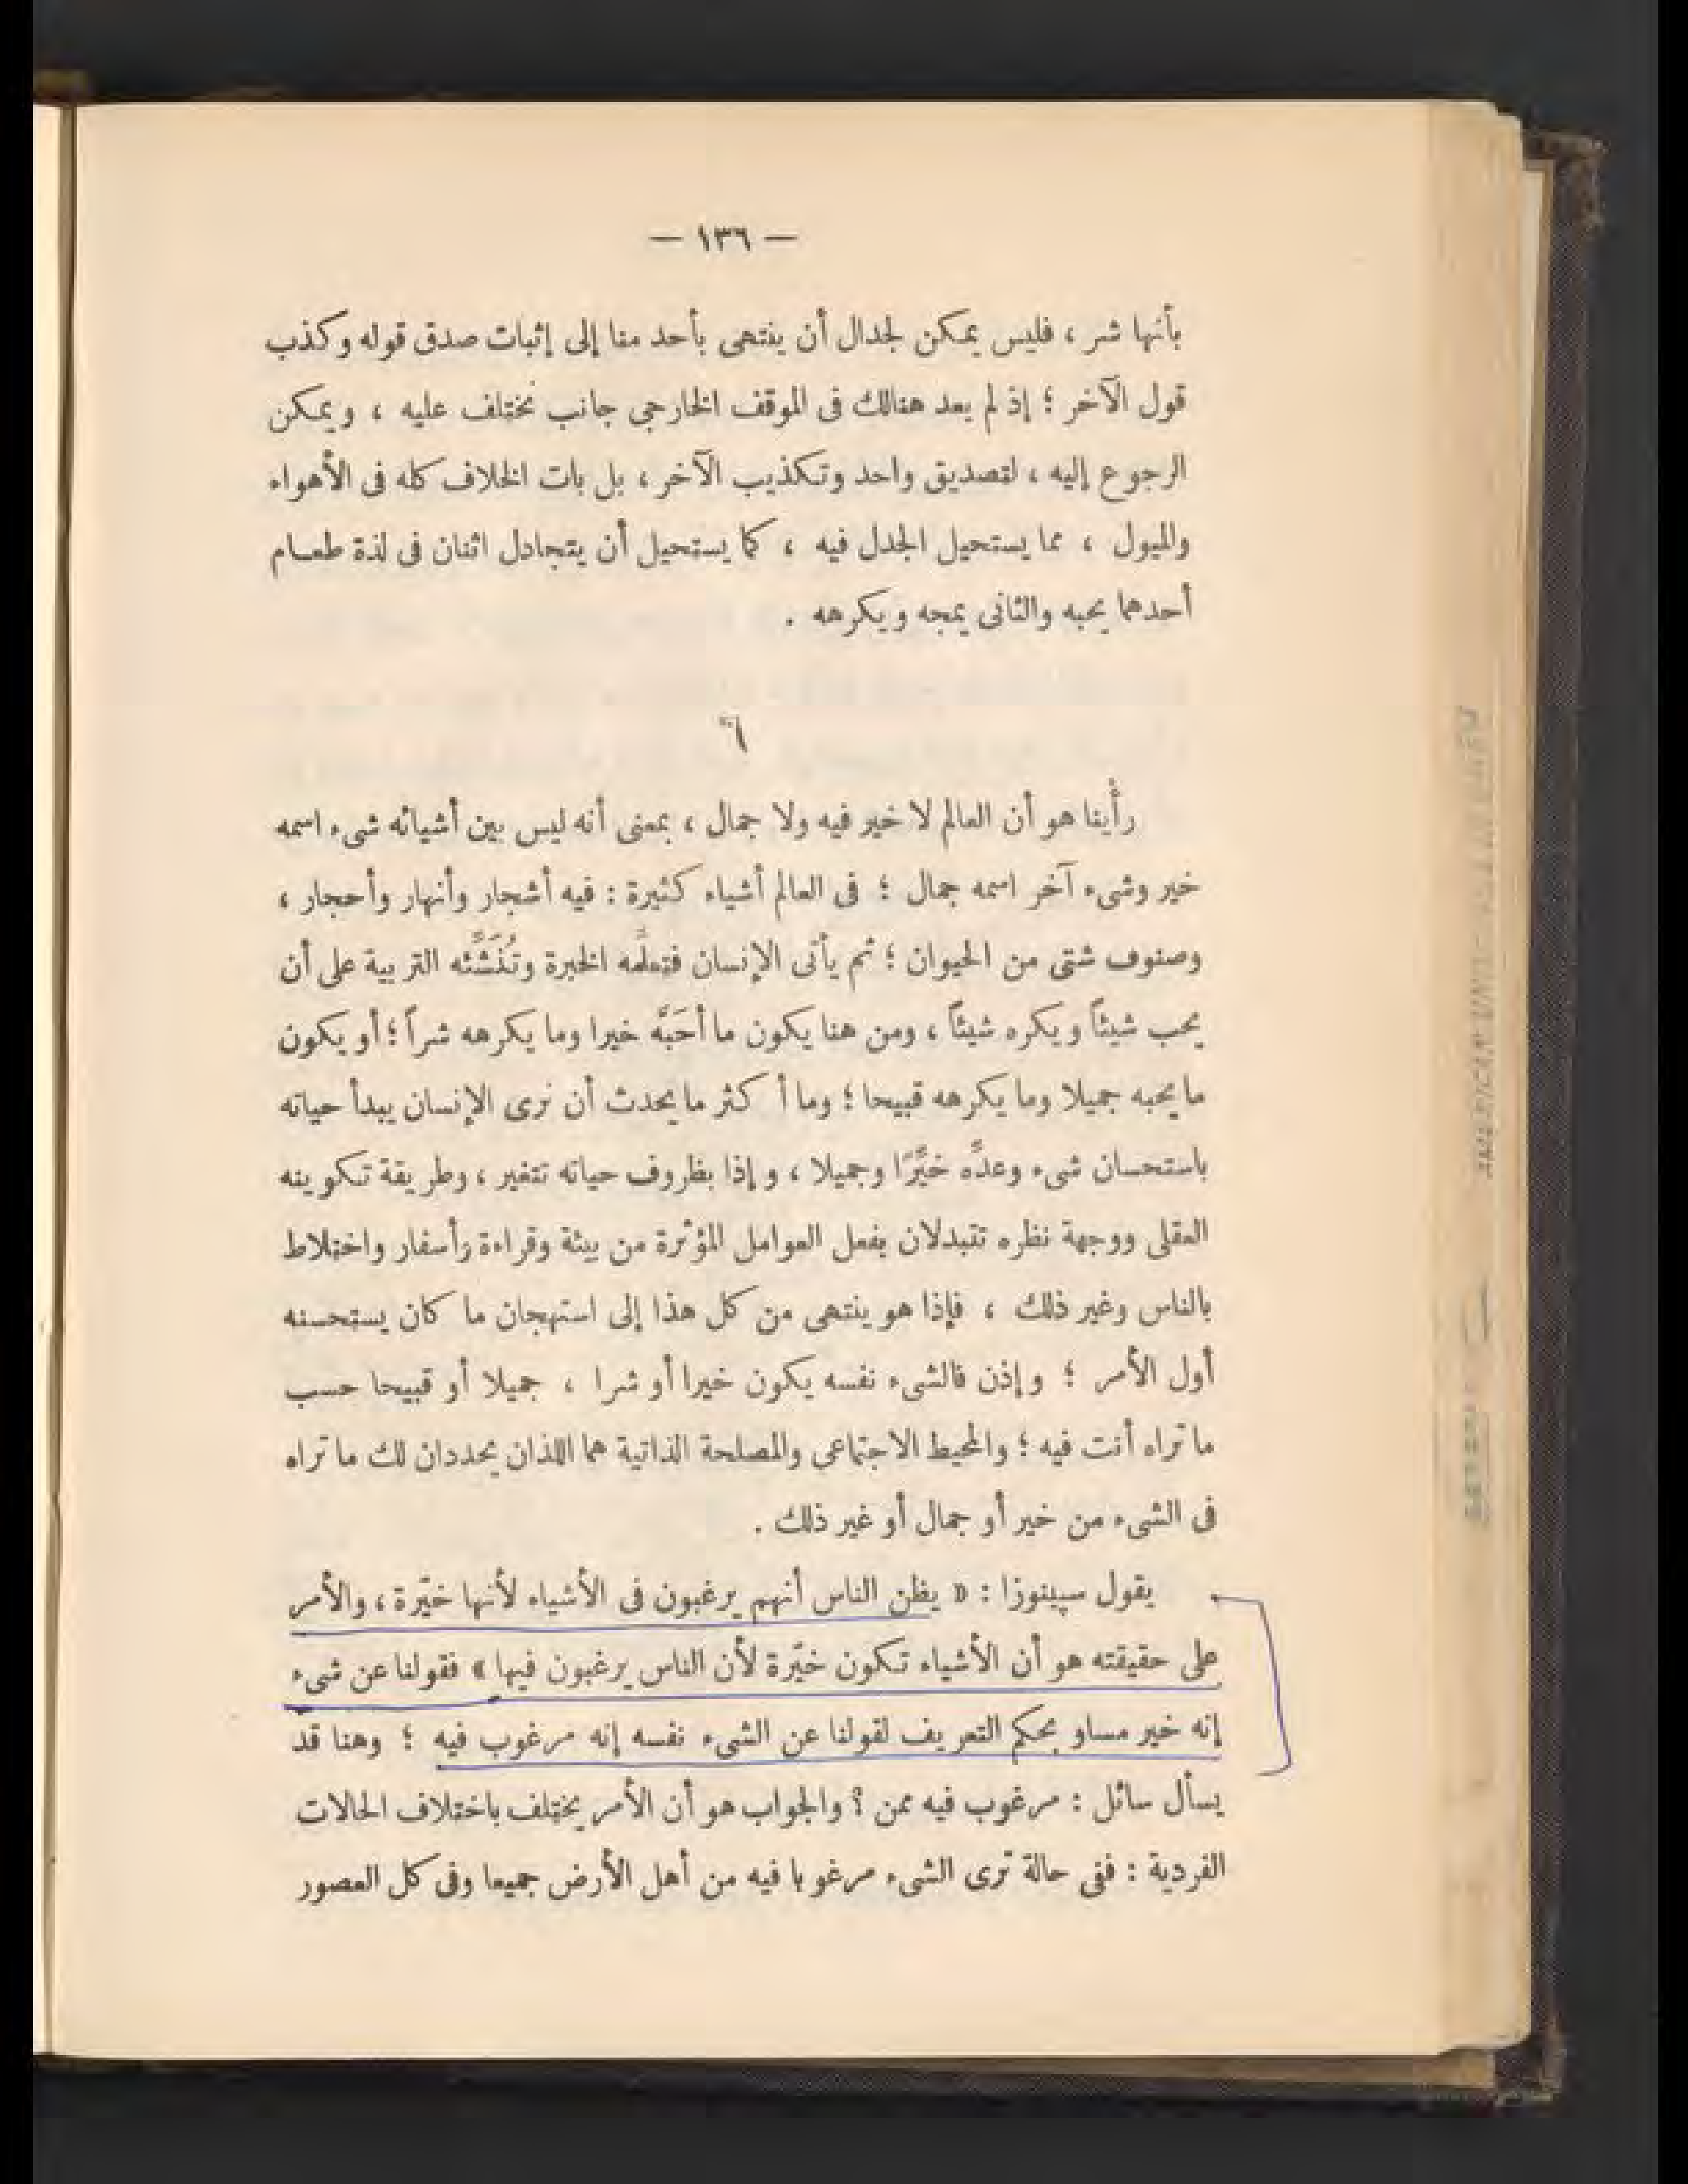 — ١٣٦ —
بأنها شر ، فليس يمكن لجدال أن ينتهى بأحد منا إلى إثبات صدق قوله وكذب
قول الآخر ؛ إذ لم يعد هنالك فى الموقف الخارجى جانب نختلف عليه ، ويمكن
الرجوع إليه ، لتصديق واحد وتكذيب الآخر ، بل بات الخلاف كله فى الأهواء
والميول ، مما يستحيل الجدل فيه ، كما يستحيل أن يتجادل اثنان فى لذة طعام
أحدهما يحبه والثانى يمجه ويكرهه .
٦
رأينا هو أن العالم لا خير فيه ولا جمال ، بمعنى أنه ليس بين أشيائه شىء اسمه
خير وشىء آخر اسمه جمال ؛ فى العالم أشياء كثيرة : فيه أشجار وأنهار وأحجار ،
وصنوف شتى من الحيوان ؛ ثم يأتى الإنسان فتعلّمه الخبرة وتُنَشِّئه التربية على أن
يحب شيئاً ويكره شيئاً ، ومن هنا يكون ما أحَبَّه خيرا وما يكرهه شراً ؛ أو يكون
ما يحبه جميلا وما يكرهه قبيحا ؛ وما أكثر ما يحدث أن نرى الإنسان يبدأ حياته
باستحسان شىء وعدِّه خيِّرًا وجميلا ، وإذا بظروف حياته تتغير ، وطريقة تكوينه
العقلى ووجهة نظره تتبدلان بفعل العوامل المؤثرة من بيئة وقراءة وأسفار واختلاط
بالناس وغير ذلك ، فإذا هو ينتهى من كل هذا إلى استهجان ما كان يستحسنه
أول الأمر ؛ وإذن فالشىء نفسه يكون خيرا أو شرا ، جميلا أو قبيحا حسب
ما تراه أنت فيه ؛ والمحيط الاجتماعى والمصلحة الذاتية هما اللذان يحددان لك ما تراه
فى الشىء من خير أو جمال أو غير ذلك .
يقول سپينوزا : « يظن الناس أنهم يرغبون فى الأشياء لأنها خيّرة ، والأمر
على حقيقته هو أن الأشياء تكون خيّرة لأن الناس يرغبون فيها » فقولنا عن شىء
إنه خير مساو بحكم التعريف لقولنا عن الشىء نفسه إنه مرغوب فيه ؛ وهنا قد
يسأل سائل : مرغوب فيه ممن ؟ والجواب هو أن الأمر يختلف باختلاف الحالات
الفردية : ففى حالة ترى الشىء مرغوبا فيه من أهل الأرض جميعا وفى كل العصور